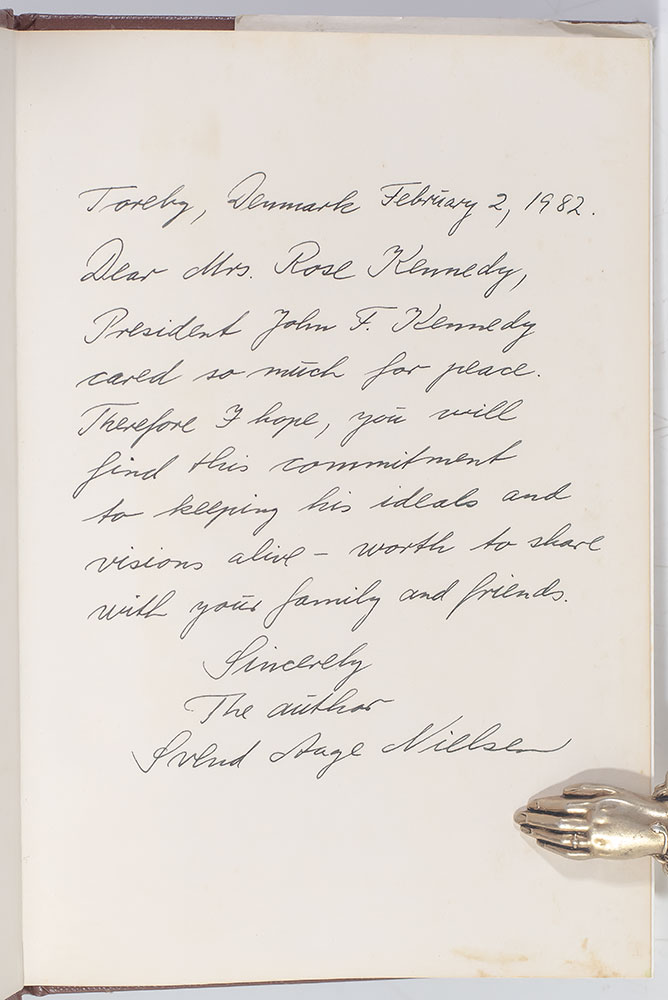 Toreby, Denmark February 2, 1982.
Dear Mrs. Rose Kennedy,
President John F. Kennedy
cared so much for peace.
Therefore I hope, you will
find this commitment
to keeping his ideals and
visions alive – worth to share
with your family and friends.
Sincerely
The author
Svend Aage Nielsen